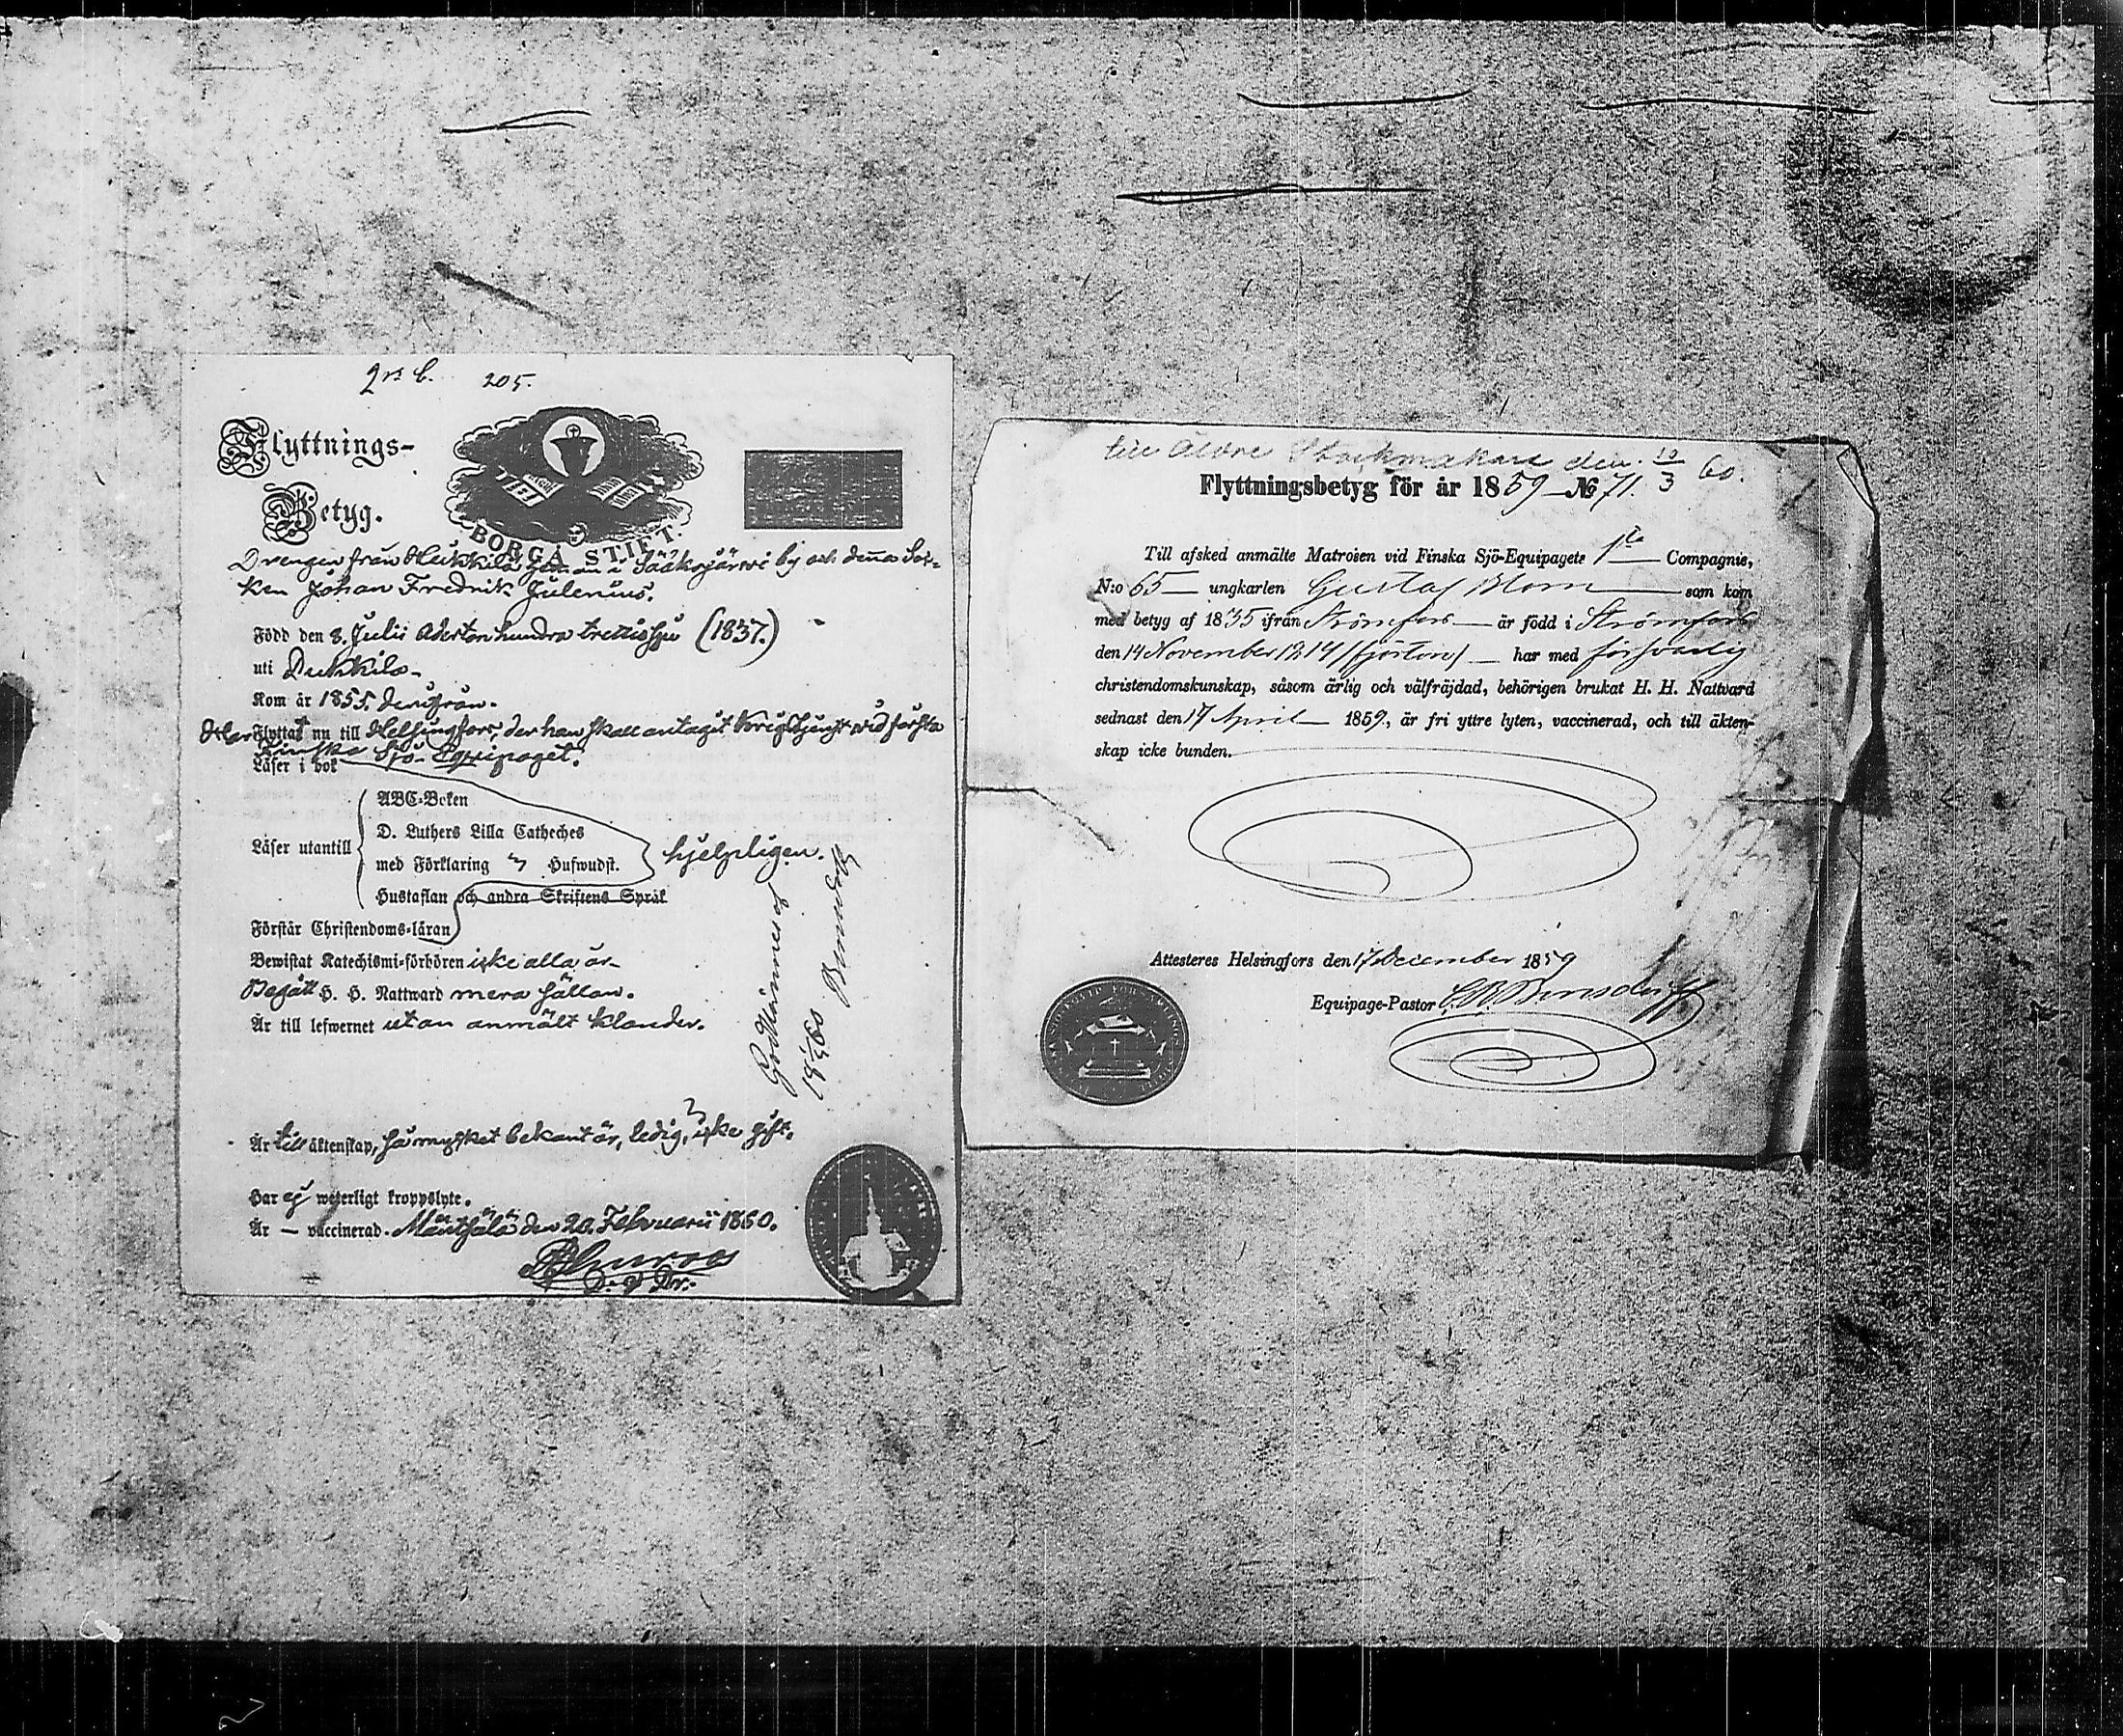 205.
Flyttnings-
Betyg.
BORGÅ STIFT.
Drengen från Heikkilä hemman i Sääksjärvi by och denna Soc-
ken Johan Fredrik Julenius.
Född den 8. Julii Adertonhundra trettisju (1837.)
uti
Kom år 1855. derifrån.
Har Flyttat nu till Helsingfors, der han skall antagit Krigstjenst vid första
Finska Sjö-Equipaget.
Läser i bok
ABC-Boken
D. Luthers Lilla Catheches
Läser utantill
med Förklaring Hufwudst.
hjelpligen.
Hustaflan och andra Skriftens Språk
Förstår Christendoms-läran
Bewistat Katechismi-förhören icke alla år
Begått H. H. Nattward mera sällan.
Är till lefwernet utan anmält klander.
Är till äktenskap, så mycket bekant är, ledig, icke gift.
Har ej weterligt kroppslyte.
Är — vaccinerad. Mäntsälä den 20. Februarii 1860.
till Äldre Stockmakare den 10/3 60.
Flyttningsbetyg för år 1859 — No 71.
Till afsked anmälte Matrosen vid Finska Sjö-Equipagets 1sta Compagnie,
N:o 65 — ungkarlen Gustaf Blom — som kom
med betyg af 1835 ifrån Strömfors — är född i Strömfors
den 14 November 1814 (fjorton) — har med försvarlig
christendomskunskap, såsom ärlig och välfräjdad, behörigen brukat H. H. Nattvard
sednast den 17 April 1859., är fri yttre lyten, vaccinerad, och till äkten-
skap icke bunden.
Attesteres Helsingfors den 17 December 1859
Equipage-Pastor